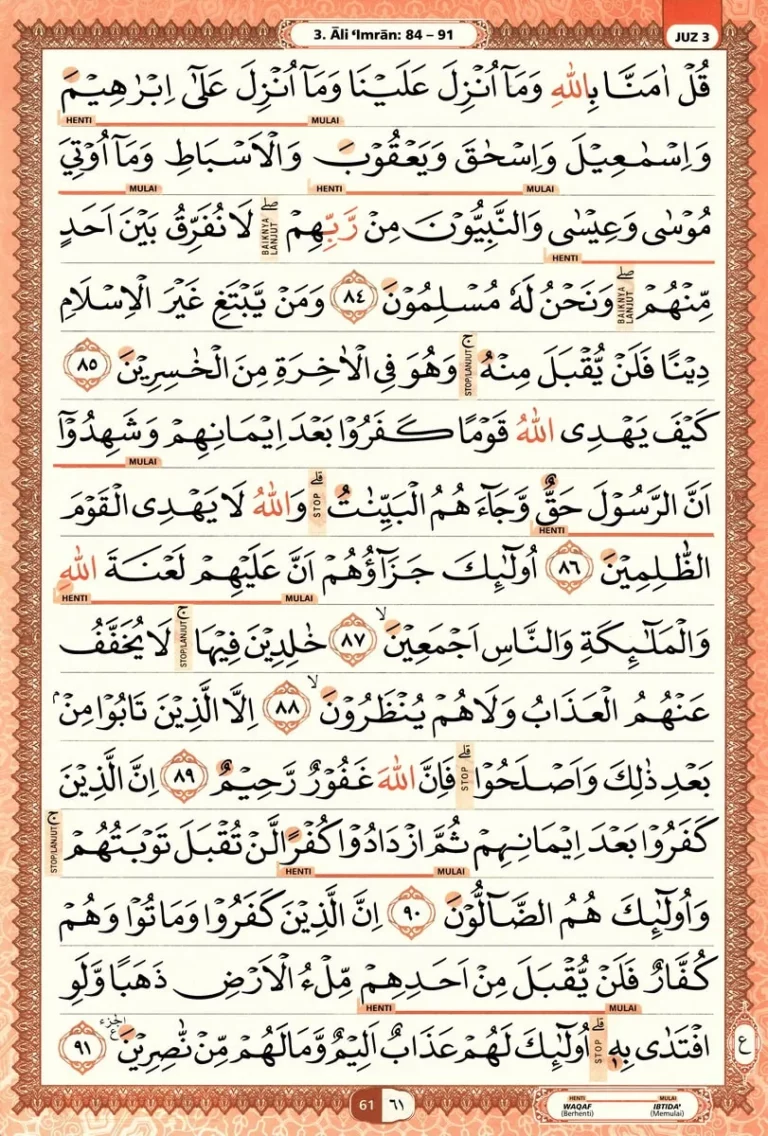 3. Āli ‘Imrān: 84 – 91
JUZ 3
قُلْ اٰمَنَّا بِاللّٰهِ وَمَآ اُنْزِلَ عَلَيْنَا وَمَآ اُنْزِلَ عَلٰٓى اِبْرٰهِيْمَ
HENTI MULAI
وَاِسْمٰعِيْلَ وَاِسْحٰقَ وَيَعْقُوْبَ وَالْاَسْبَاطِ وَمَآ اُوْتِيَ
MULAI HENTI MULAI
مُوْسٰى وَعِيْسٰى وَالنَّبِيُّوْنَ مِنْ رَّبِّهِمْ ۖ لَا نُفَرِّقُ بَيْنَ اَحَدٍ
BAIKNYA LANJUT
HENTI
مِّنْهُمْ ۖ وَنَحْنُ لَهٗ مُسْلِمُوْنَ ٨٤ وَمَنْ يَّبْتَغِ غَيْرَ الْاِسْلَامِ
BAIKNYA LANJUT
دِيْنًا فَلَنْ يُّقْبَلَ مِنْهُ ۚ وَهُوَ فِى الْاٰخِرَةِ مِنَ الْخٰسِرِيْنَ ٨٥
STOP/LANJUT
كَيْفَ يَهْدِى اللّٰهُ قَوْمًا كَفَرُوْا بَعْدَ اِيْمَانِهِمْ وَشَهِدُوْٓا
MULAI
اَنَّ الرَّسُوْلَ حَقٌّ وَّجَاۤءَهُمُ الْبَيِّنٰتُ ۗ وَاللّٰهُ لَا يَهْدِى الْقَوْمَ
STOP
HENTI
الظّٰلِمِيْنَ ٨٦ اُولٰۤىِٕكَ جَزَاۤؤُهُمْ اَنَّ عَلَيْهِمْ لَعْنَةَ اللّٰهِ
HENTI MULAI
وَالْمَلٰۤىِٕكَةِ وَالنَّاسِ اَجْمَعِيْنَ ۙ ٨٧ خٰلِدِيْنَ فِيْهَا ۚ لَا يُخَفَّفُ
STOP/LANJUT
عَنْهُمُ الْعَذَابُ وَلَا هُمْ يُنْظَرُوْنَ ۙ ٨٨ اِلَّا الَّذِيْنَ تَابُوْا مِنْۢ
بَعْدِ ذٰلِكَ وَاَصْلَحُوْا ۗ فَاِنَّ اللّٰهَ غَفُوْرٌ رَّحِيْمٌ ٨٩ اِنَّ الَّذِيْنَ
STOP
كَفَرُوْا بَعْدَ اِيْمَانِهِمْ ثُمَّ ازْدَادُوْا كُفْرًا لَّنْ تُقْبَلَ تَوْبَتُهُمْ ۚ
STOP/LANJUT
HENTI MULAI
وَاُولٰۤىِٕكَ هُمُ الضَّاۤلُّوْنَ ٩٠ اِنَّ الَّذِيْنَ كَفَرُوْا وَمَاتُوْا وَهُمْ
كُفَّارٌ فَلَنْ يُّقْبَلَ مِنْ اَحَدِهِمْ مِّلْءُ الْاَرْضِ ذَهَبًا وَّلَوِ
HENTI MULAI
افْتَدٰى بِهٖ ۗ اُولٰۤىِٕكَ لَهُمْ عَذَابٌ اَلِيْمٌ وَّمَا لَهُمْ مِّنْ نّٰصِرِيْنَ ۔ ٩١
STOP
الجزء
ع
ع
61 ٦١
HENTI MULAI
WAQAF IBTIDA'
(Berhenti) (Memulai)